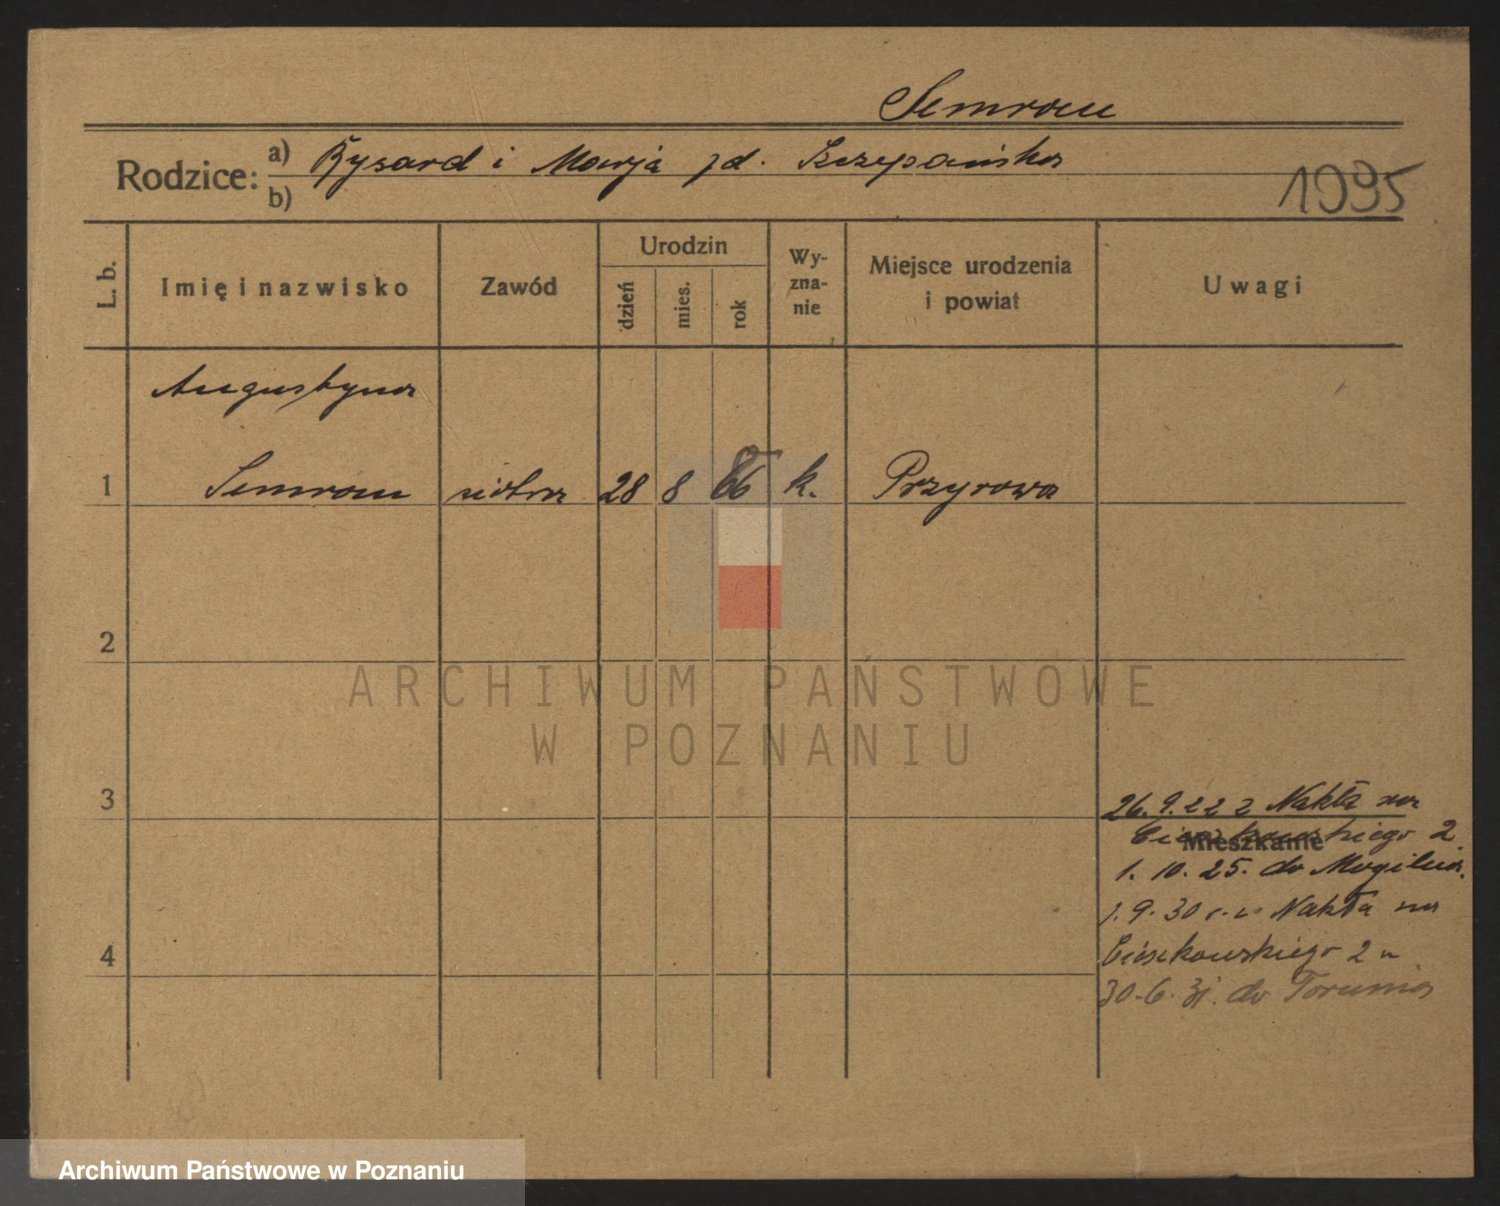 Semrau
Rodzice:
a) Rysard i Marja zd. Szczepańska
b)
1095
L. b.
Imię i nazwisko
Zawód
Urodzin
dzień
mies.
rok
Wy-
zna-
nie
Miejsce urodzenia
i powiat
Uwagi
Augustyna
1 Semrau siostra 28 8 86 k. Przyrowa
2
ARCHIWUM PAŃSTWOWE
W POZNANIU
3
26.9.22 z Nakła na
Cieszkowskiego 2
Mieszkanie
1. 10. 25. do Mogilna.
1. 9. 30 Nakła na
4
Cieszkowskiego 2
30.6.31. do Torunia
Archiwum Państwowe w Poznaniu